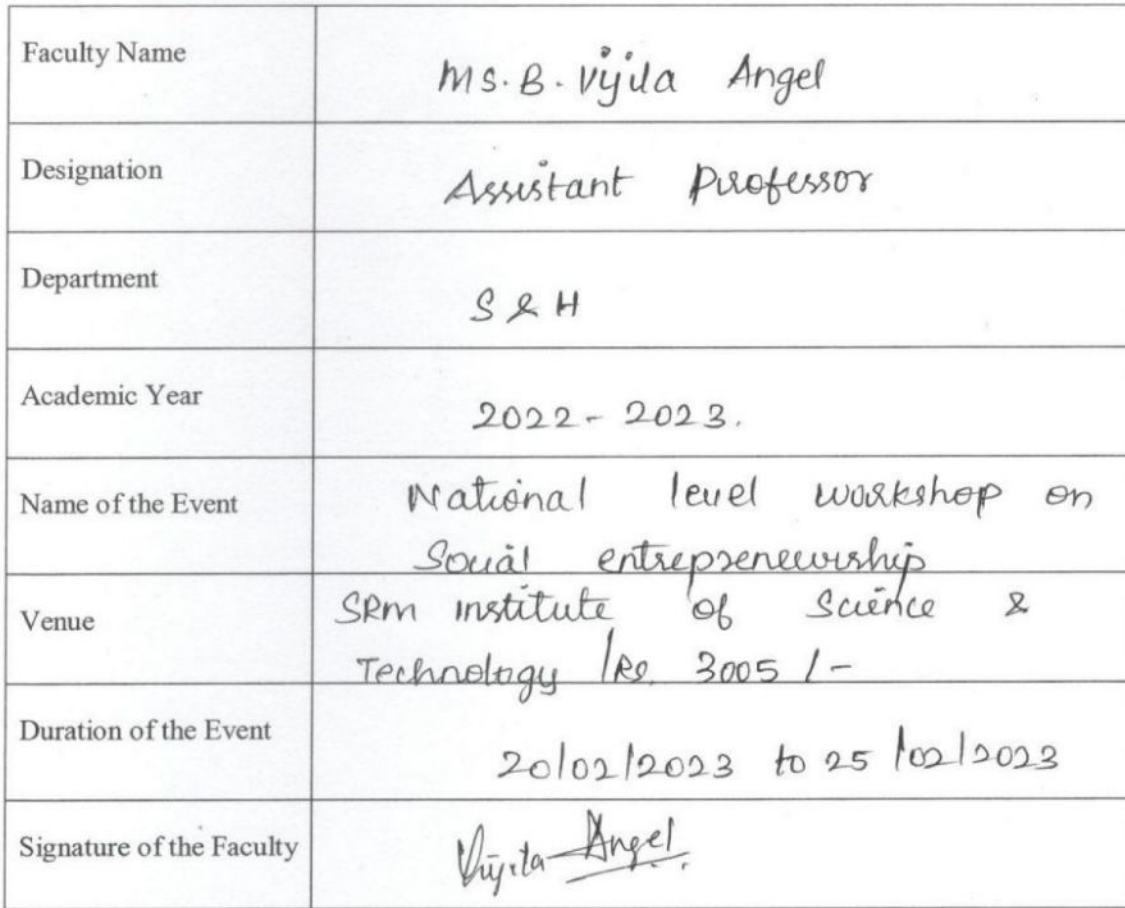 Faculty Name
Ms. B. Vijila Angel
Designation
Assistant Professor
Department
S & H
Academic Year
2022 - 2023.
Name of the Event
National level workshop on
Social entrepreneurship
Venue
SRM institute of Science &
Technology /Rs. 3005 /-
Duration of the Event
20/02/2023 to 25/02/2023
Signature of the Faculty
Vijila Angel